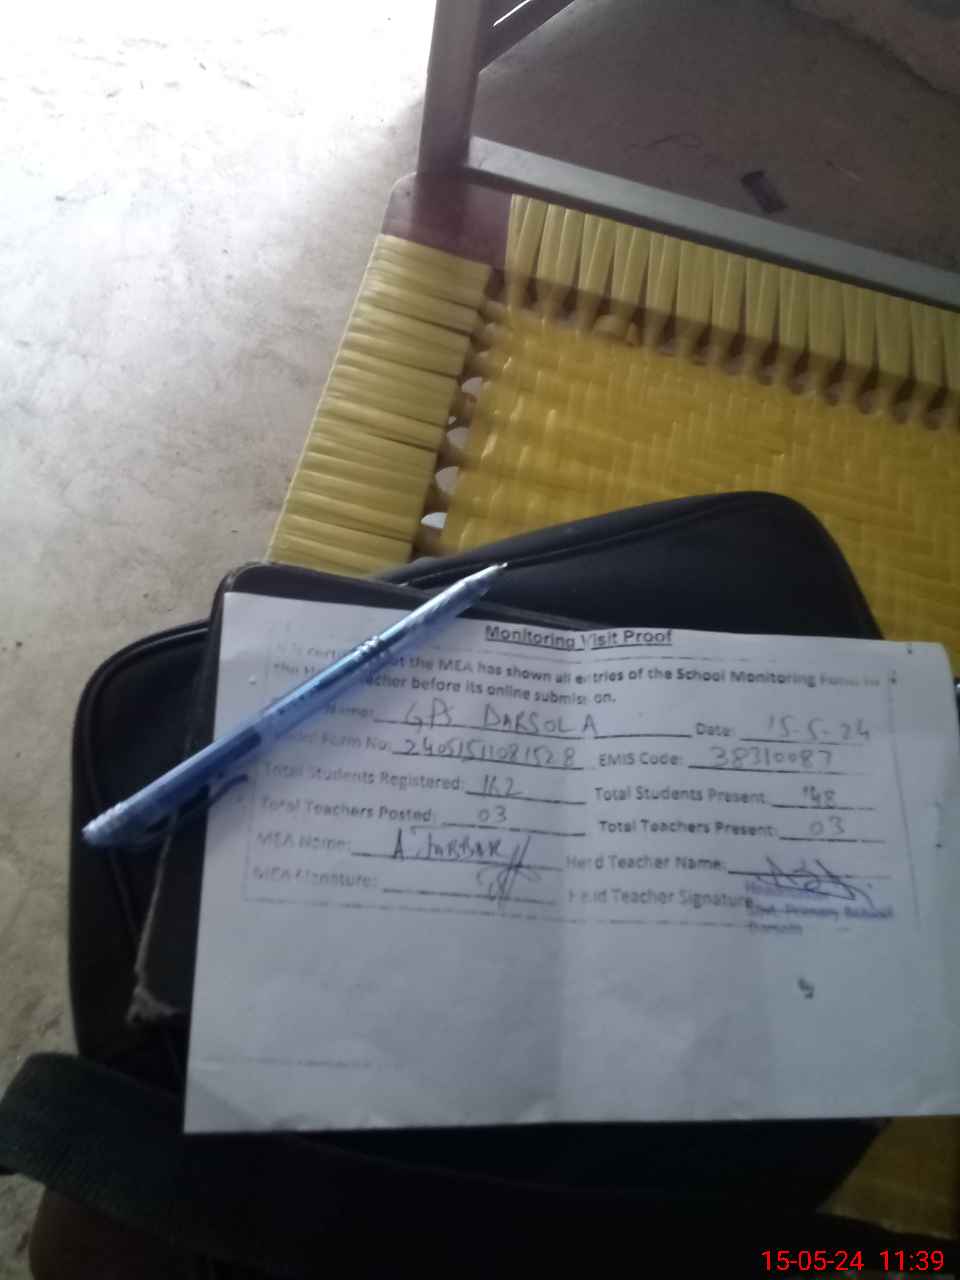 Monitoring Visit Proof
the MEA has shown all entries of the School Monitoring Form to
the before its online submission.
Name: GPS DARSOLA Date: 15-5-24
Form No: EMIS Code: 38310087
Total Students Registered: 162 Total Students Present: 148
Total Teachers Posted: 03 Total Teachers Present: 03
MEA Name: A. JABBAR Head Teacher Name:
MEA Signature: Head Teacher Signature
Govt. Primary School
Darsola
15-05-24 11:39